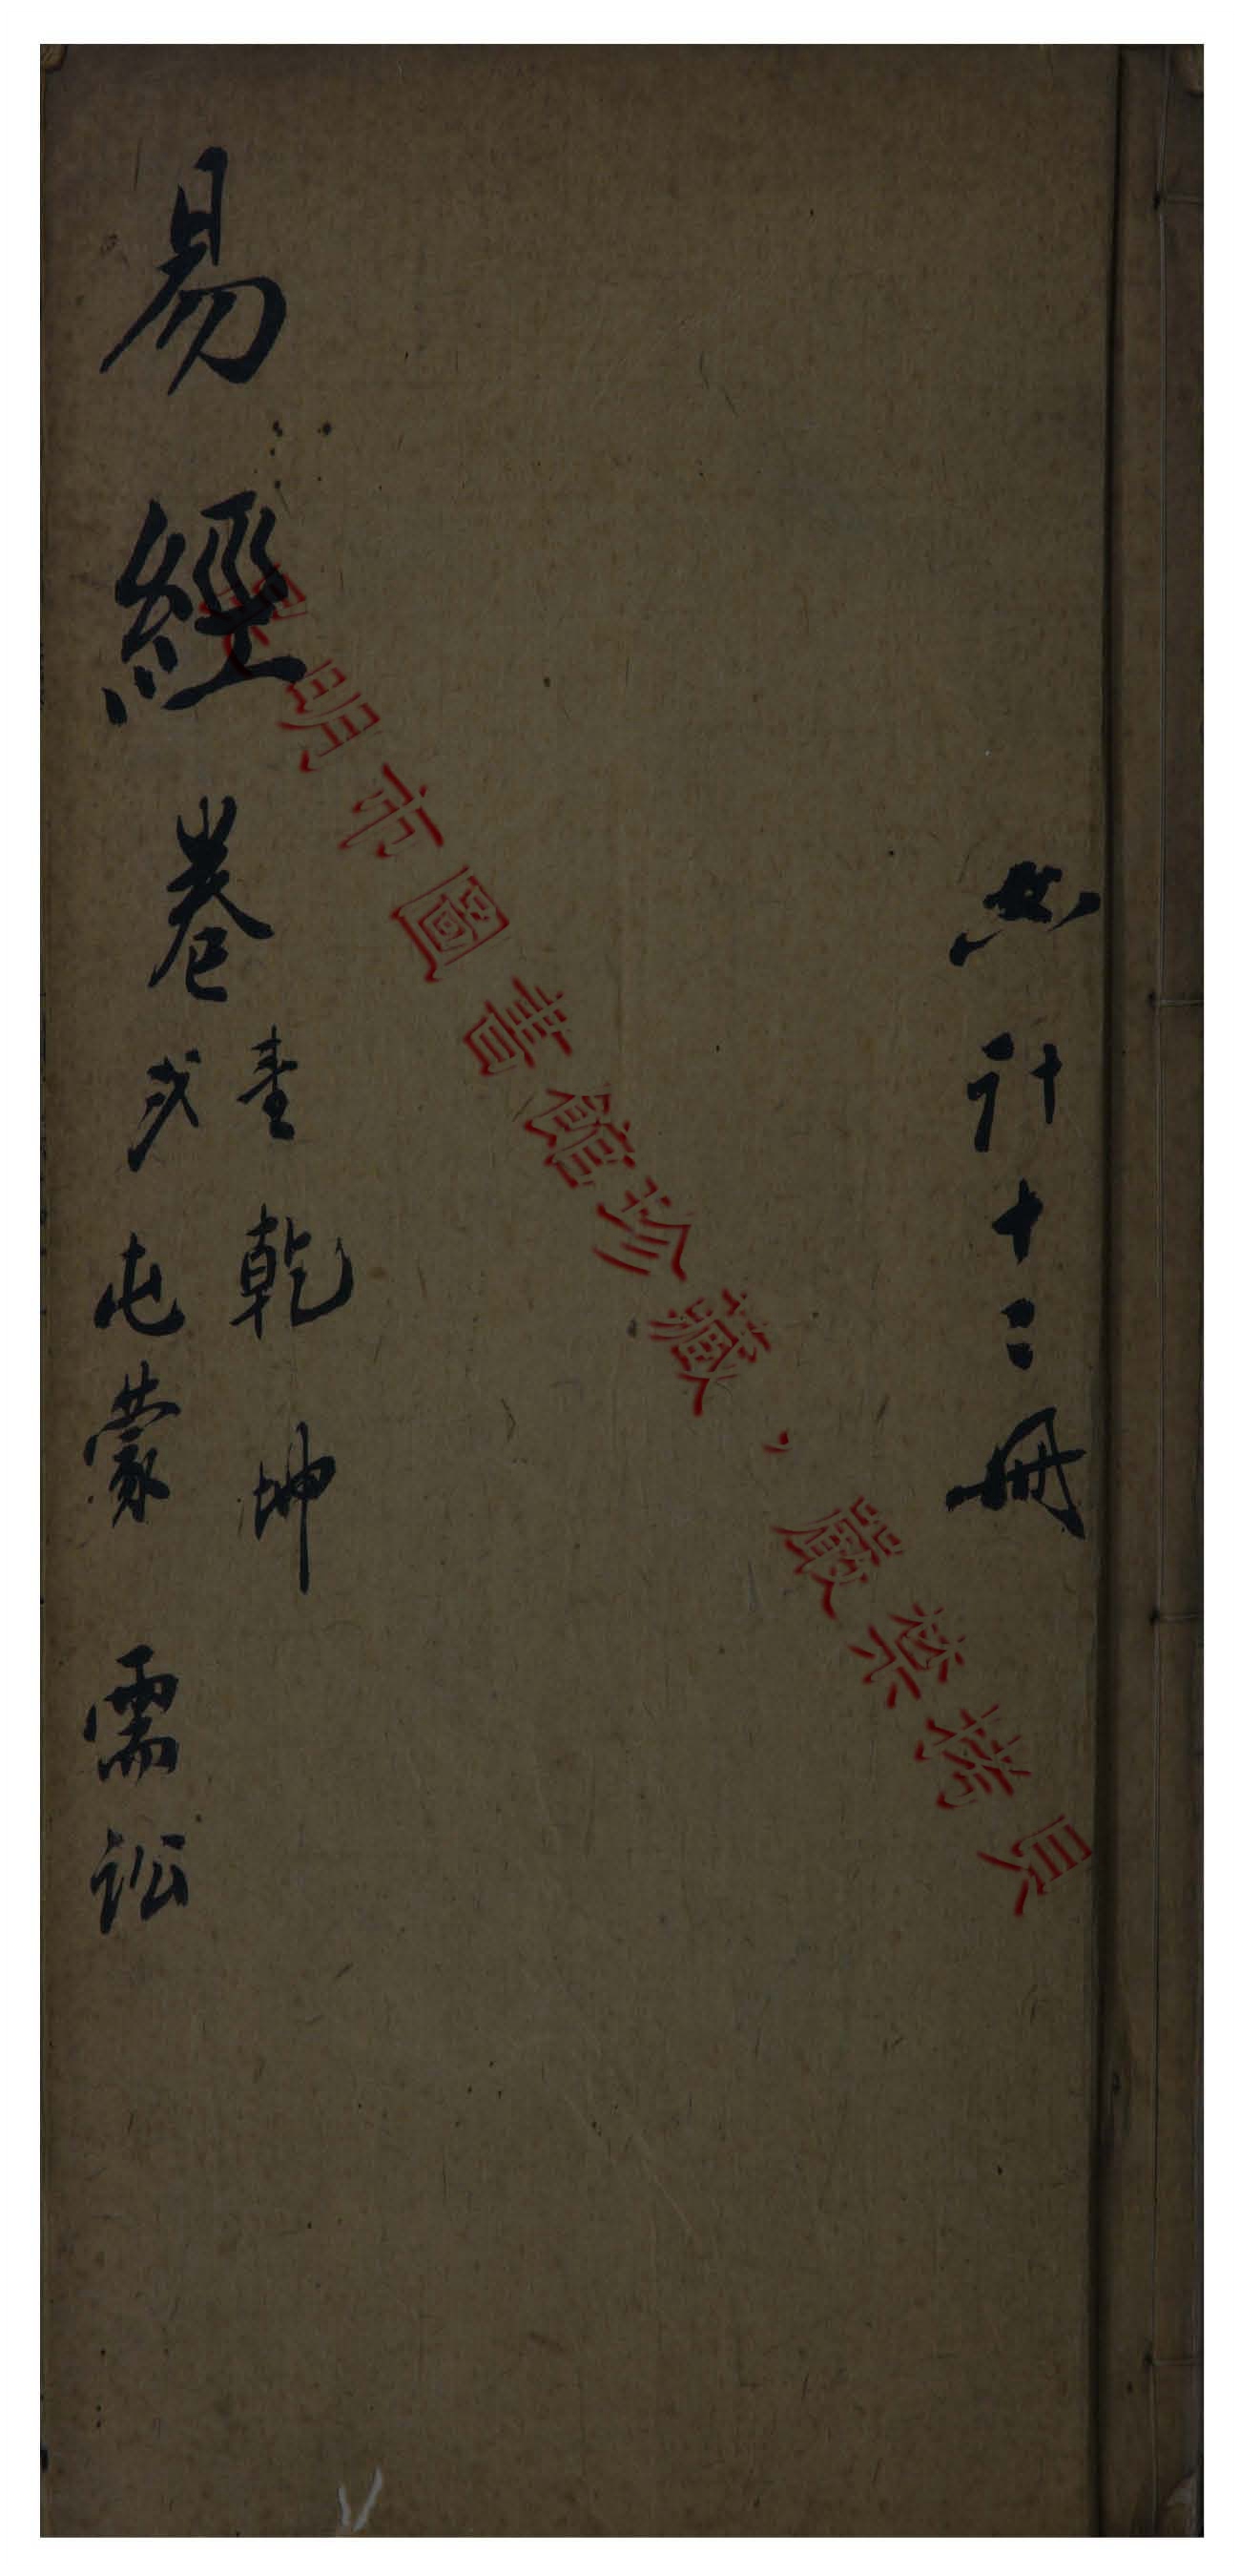 共計十二冊
易經卷
壹 乾 坤
弍 屯蒙 需訟
昆明市圖書館珍藏，嚴禁拷貝